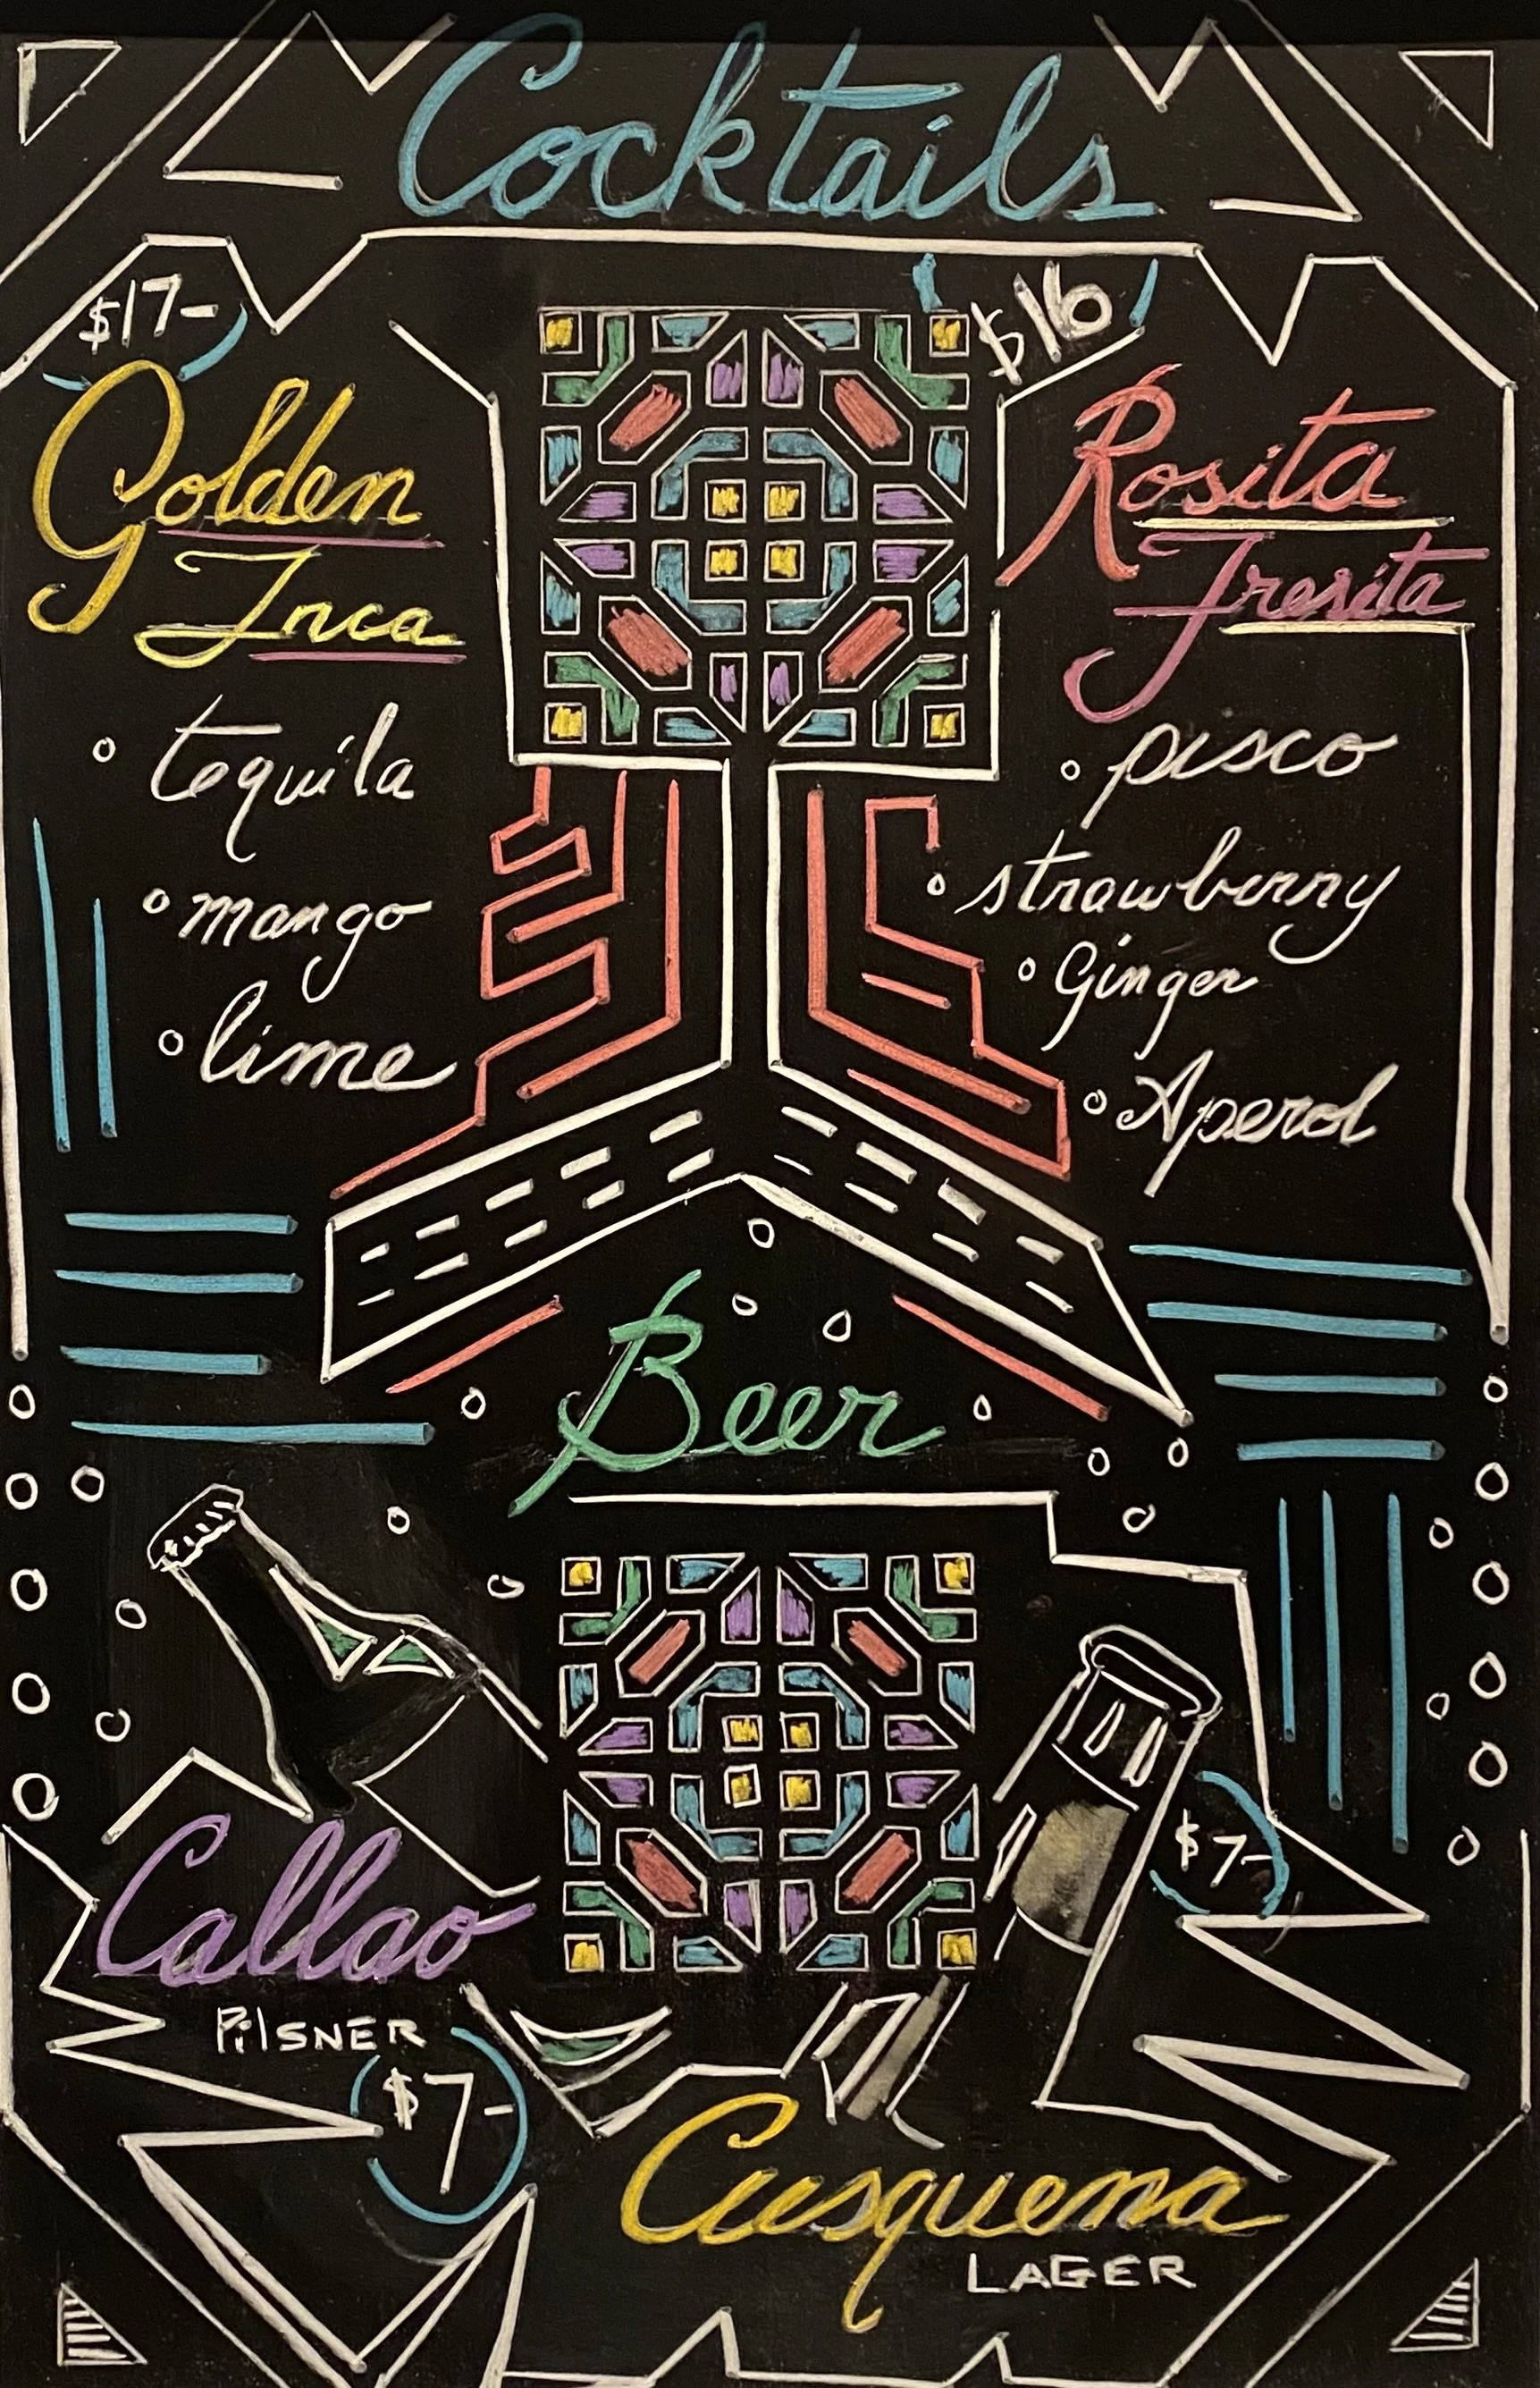 Cocktails
$17-
Golden
Inca
tequila
mango
lime
$16
Rosita
Fresita
pisco
strawberry
Ginger
Aperol
Beer
Callao
PilsNER
$7-
$7-
Cusquena
LAGER